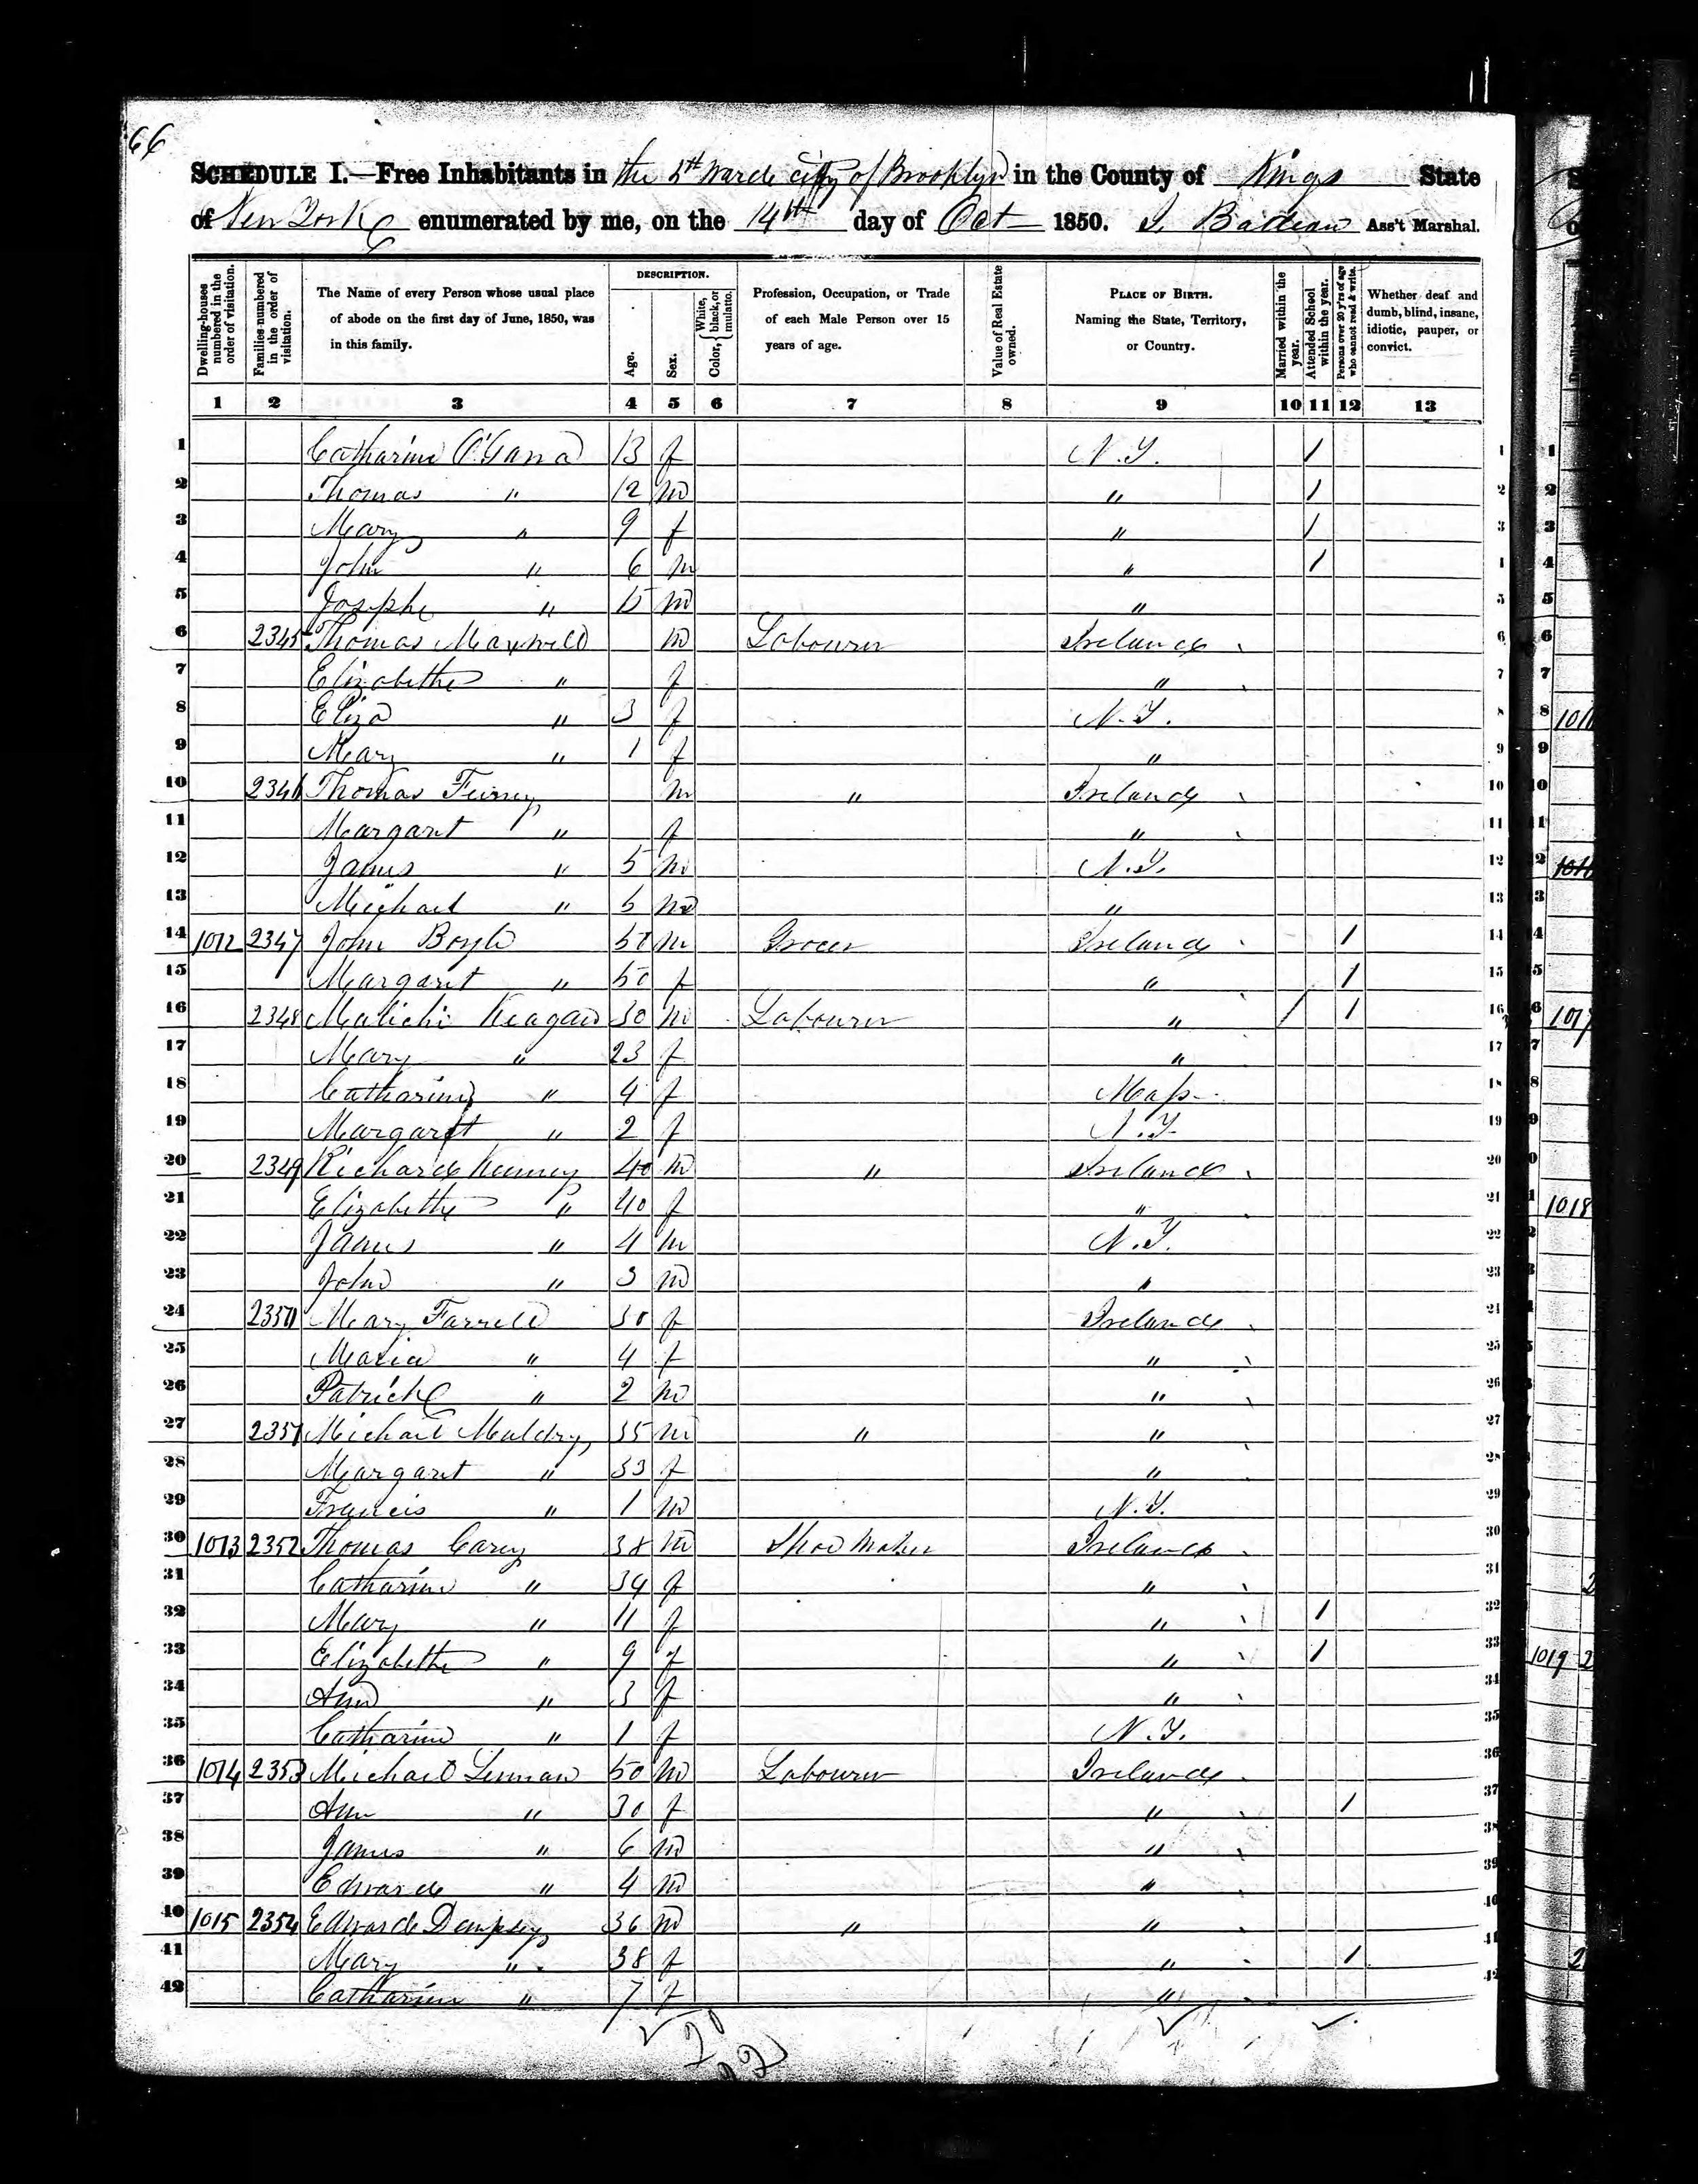 66
SCHEDULE I.—Free Inhabitants in the 5th Ward city of Brooklyn in the County of Kings State
of New York enumerated by me, on the 14th day of Oct 1850. Ass't Marshal.
Dwelling-houses numbered in the order of visitation.
Families numbered in the order of visitation.
The Name of every Person whose usual place of abode on the first day of June, 1850, was in this family.
DESCRIPTION.
Age.
Sex.
Color, { White, black, or mulatto.
Profession, Occupation, or Trade of each Male Person over 15 years of age.
Value of Real Estate owned.
PLACE OF BIRTH. Naming the State, Territory, or Country.
Married within the year.
Attended School within the year.
Persons over 20 y'rs of age who cannot read & write.
Whether deaf and dumb, blind, insane, idiotic, pauper, or convict.
1 2 3 4 5 6 7 8 9 10 11 12 13
1 Catharine O'Gara 13 f N.Y. / 1
2 Thomas " 12 m " / 2
3 Mary " 9 f " / 3
4 John " 6 m " / 4
5 Joseph " m " 5
6 2345 Thomas Maxwell m Labourer Ireland 6
7 Elizabeth " f " 7
8 Eliza " 3 f N.Y. 8
9 Mary " 1 f " 9
10 2346 Thomas m " Ireland 10
11 Margaret " f " 11
12 James " 5 m N.Y. 12
13 Michael " m " 13
14 1012 2347 John Boyle m Grocer Ireland 1 14
15 Margaret " 50 f " 1 15
16 2348 Malichi Keagan 30 m Labourer " / 1 16
17 Mary " 23 f " 17
18 Catharine " 4 f Mass 18
19 Margaret " 2 f N.Y. 19
20 2349 Richard 40 m " Ireland 20
21 Elizabeth " 40 f " 21
22 James " 4 m N.Y. 22
23 John " 3 m " 23
24 2350 Mary Farrell 30 f Ireland 24
25 Maria " 4 f " 25
26 Patrick " 2 m " 26
27 2351 Michael Muldry 35 m " " 27
28 Margaret " 33 f " 28
29 Francis " 1 m N.Y. 29
30 1013 2352 Thomas Carey 38 m Shoe Maker Ireland 30
31 Catharine " 34 f " 31
32 Mary " 11 f " / 32
33 Elizabeth " 9 f " / 33
34 Ann " 3 f " 34
35 Catharine " 1 f N.Y. 35
36 1014 2353 Michael Lennan 50 m Labourer Ireland 36
37 Ann " 30 f " / 37
38 James " 6 m " 38
39 Edward " 4 m " 39
40 1015 2354 Edward Dempsey 36 m " " 40
41 Mary " 38 f " / 41
42 Catharine " 7 f " 42
1017
1018
1019